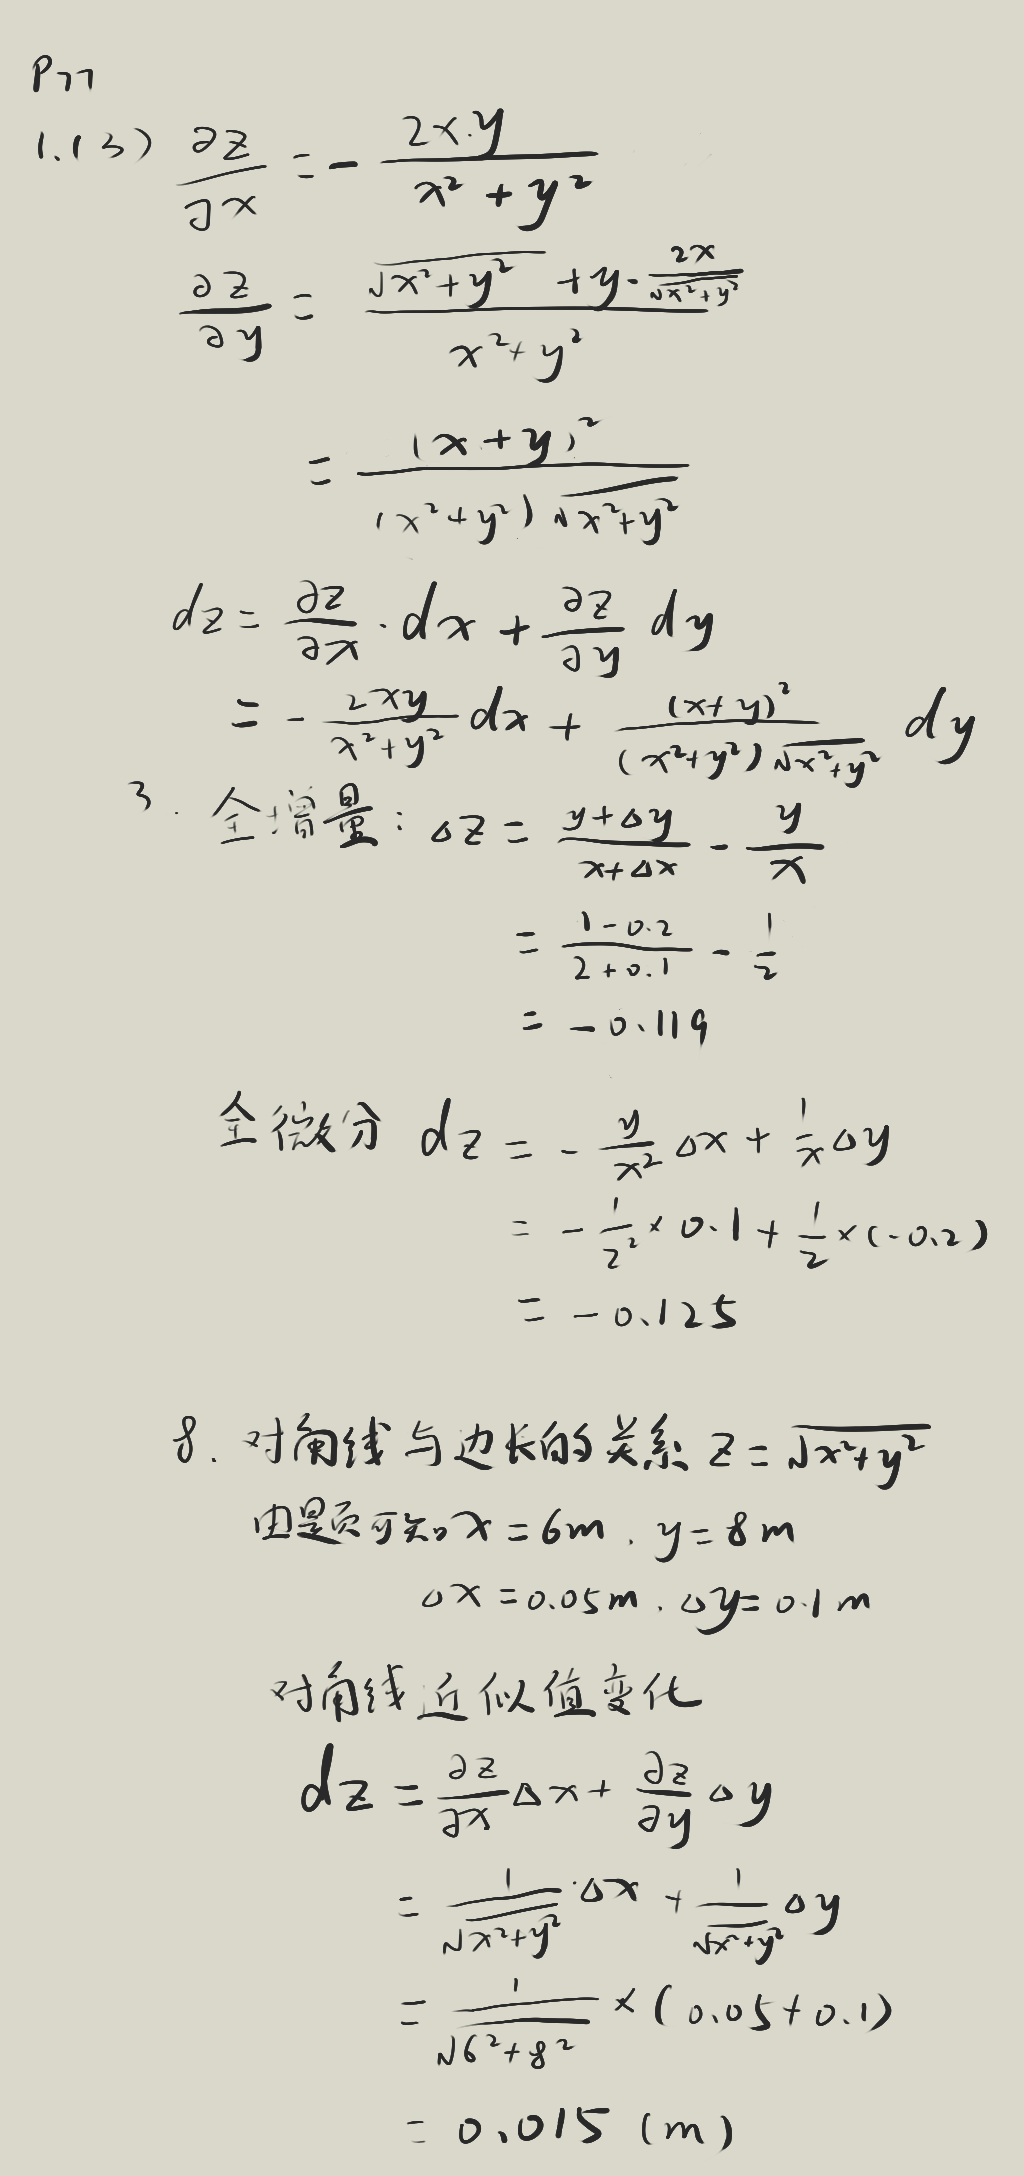 P77
1.(3) ∂z/∂x = - 2x·y/(x² + y²)
∂z/∂y = (√(x²+y²) + y·2x/√(x²+y²))/(x²+y²)
= (x+y)²/((x²+y²)√(x²+y²))
dz = ∂z/∂x · dx + ∂z/∂y dy
= - 2xy/(x²+y²) dx + (x+y)²/((x²+y²)√(x²+y²)) dy
3. 全增量: △z = (y+△y)/(x+△x) - y/x
= (1-0.2)/(2+0.1) - 1/2
= -0.119
全微分 dz = - y/x² △x + 1/x △y
= - 1/2² × 0.1 + 1/2 × (-0.2)
= -0.125
8. 对角线与边长的关系 z = √(x²+y²)
由题可知 x = 6m. y = 8m
△x = 0.05m. △y = 0.1m
对角线近似值变化
dz = ∂z/∂x △x + ∂z/∂y △y
= 1/√(x²+y²) ·△x + 1/√(x²+y²) △y
= 1/√(6²+8²) × (0.05+0.1)
= 0.015 (m)